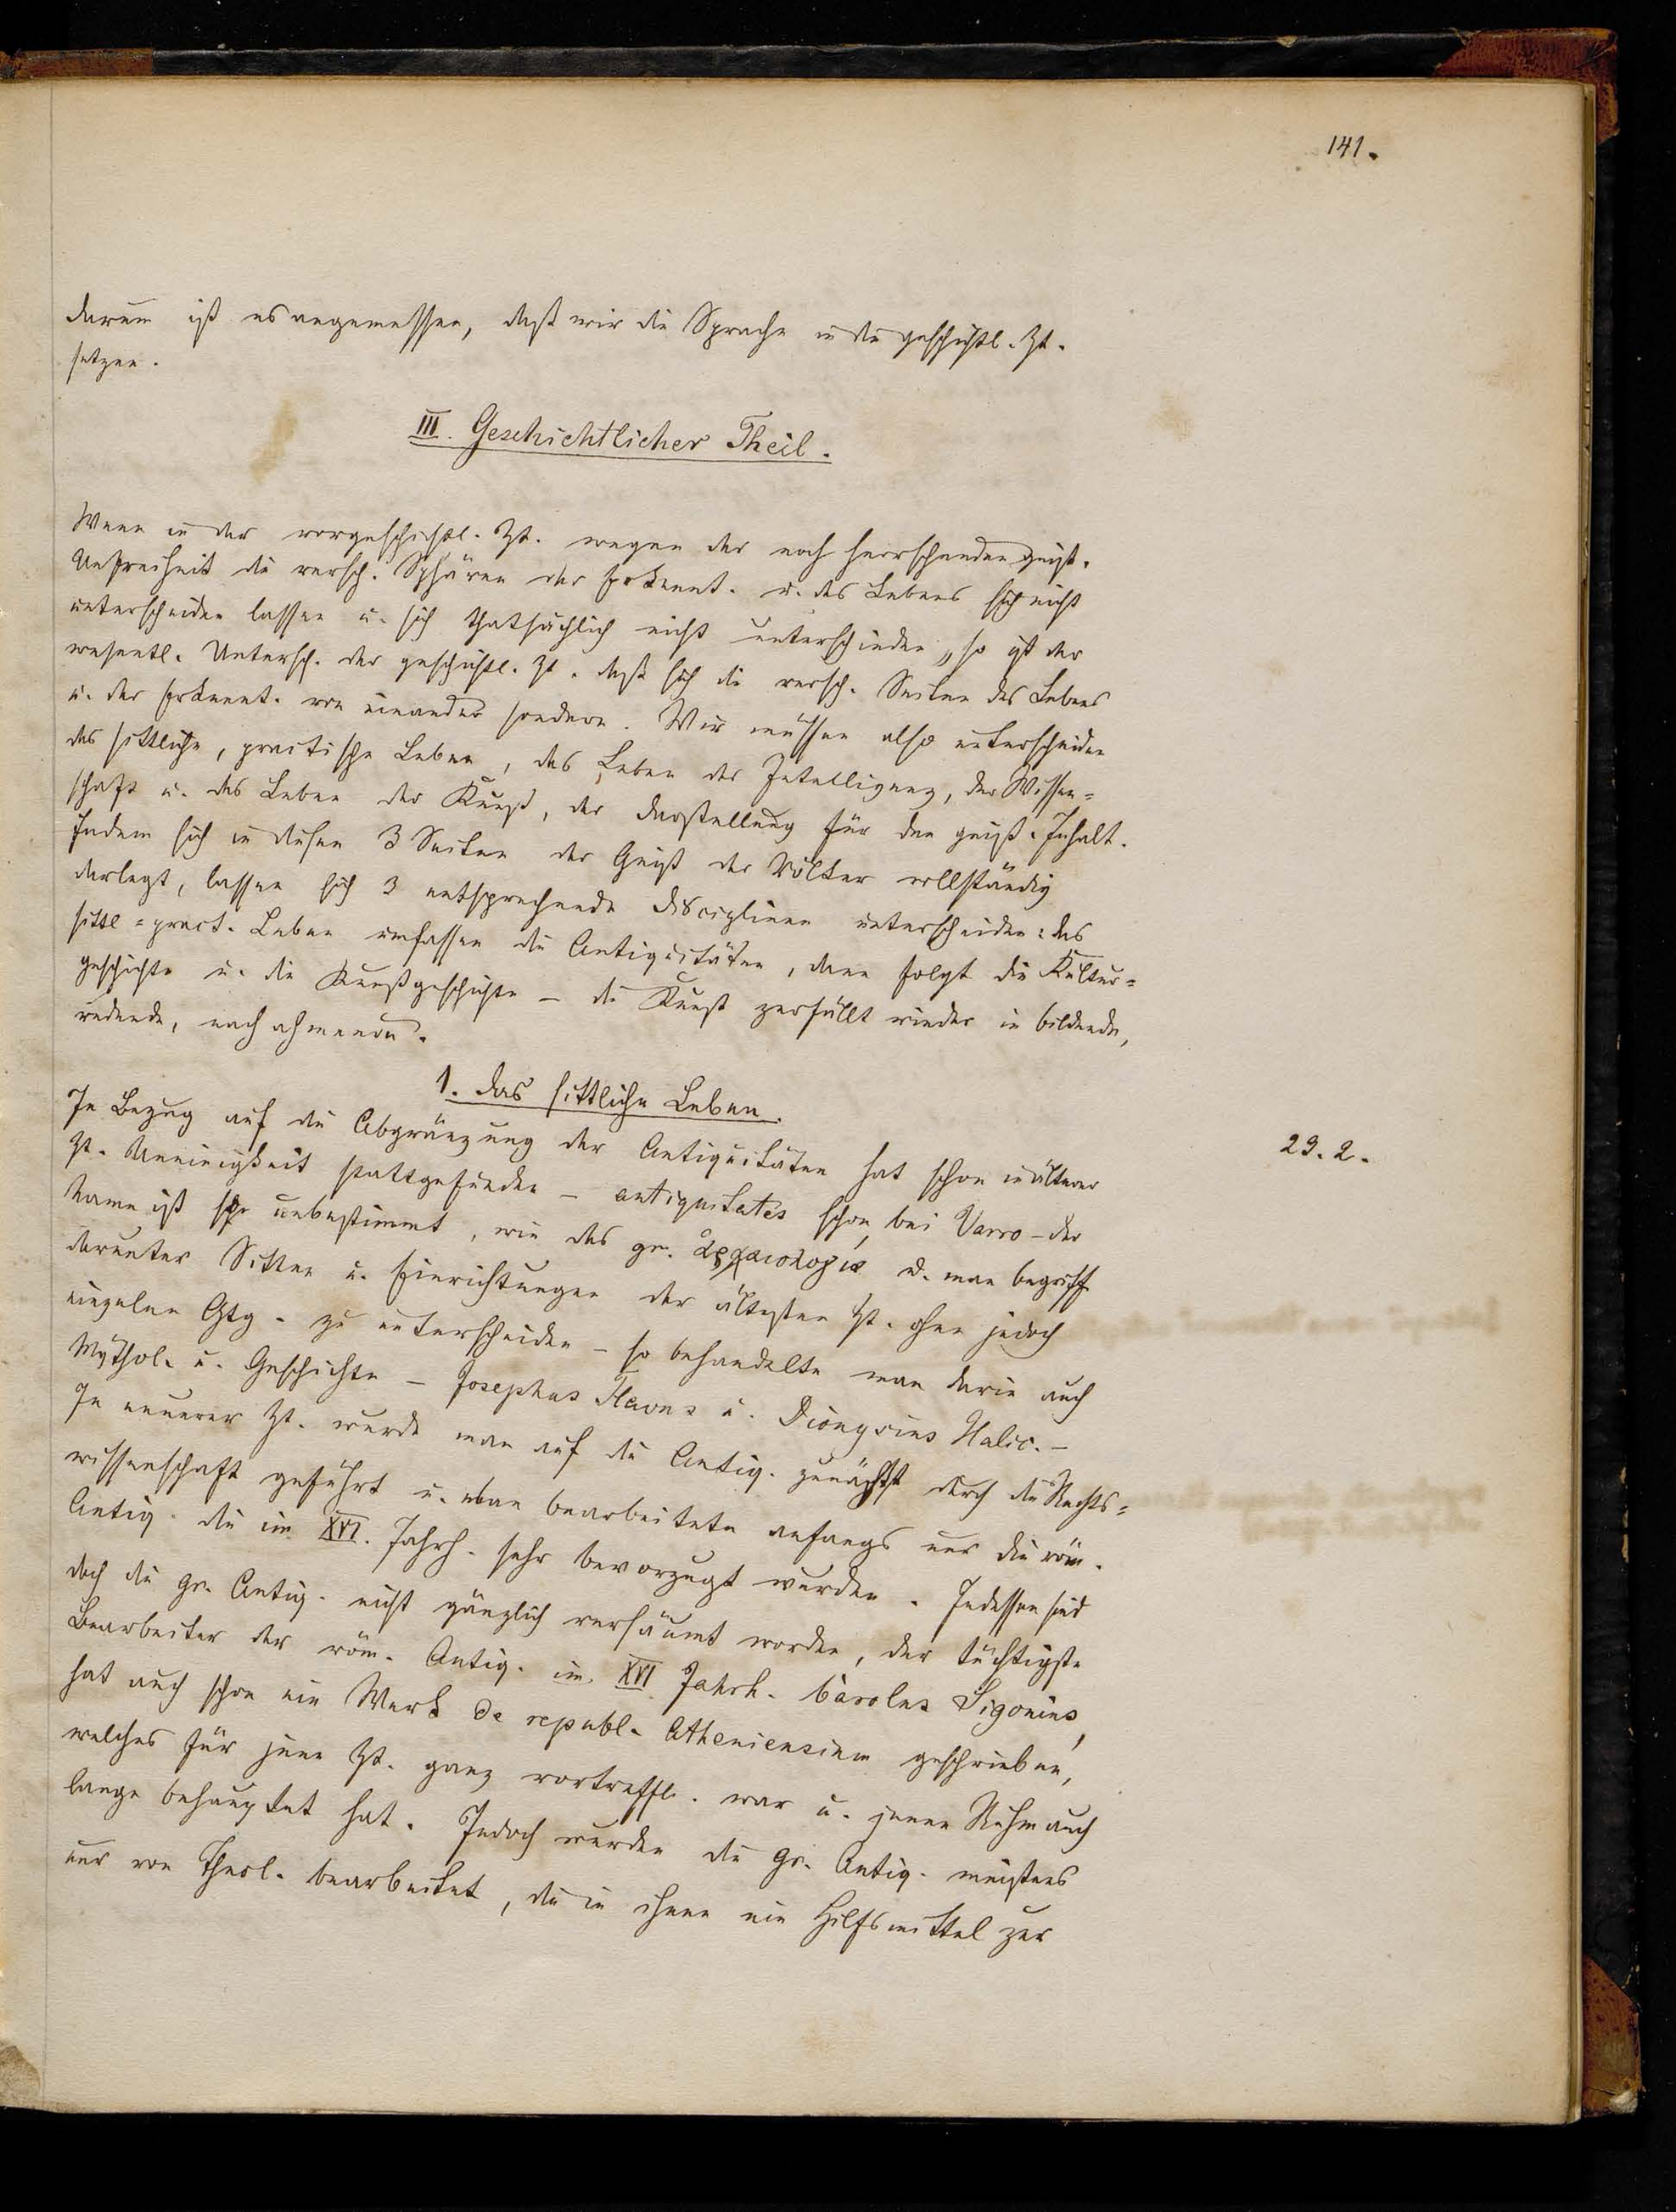 141.
darum ist es angemessen, daß wir die Sprache in die geschichtl. Zt.
setzen.
III. Geschichtlicher Theil.
Wenn in der vorgeschichtl. Zt. wegen der noch herrschenden geist.
Unfreiheit die versch. Sphären der Erkennt. u. des Lebens sich nicht
unterscheiden lassen u. sich thatsächlich nicht unterschieden, so ist der
wesentl. Untersch. der geschichtl. Zt. daß sich die versch. Seiten des Lebens
u. der Erkennt. von einander sondern. Wir müssen also unterscheiden
das sittliche, practische Leben, das Leben der Intelligenz, der Wissen=
schaft u. das Leben der Kunst, der Darstellung für den geist. Inhalt.
Indem sich in diesen 3 Seiten der Geist der Völker vollständig
darlegt, lassen sich 3 entsprechende Disciplinen unterscheiden: das
sittl=pract. Leben umfassen die Antiquitäten, dann folgt die Kultur=
geschichte u. die Kunstgeschichte – die Kunst zerfällt wieder in bildende,
redende, nachahmende.
1. Das sittliche Leben.
In Bezug auf die Abgränzung der Antiquitäten hat schon in älterer
29.2.
Zt. Uneinigkeit stattgefunden – antiquitates schon bei Varro – der
Name ist sehr unbestimmt, wie das gr. ἀρχαιολογία u. man begriff
darunter Sitten u. Einrichtungen der ältesten Zt. ohne jedoch
einzelne Gtg. zu unterscheiden – so behandelte man darin auch
Mythol. u. Geschichte – Josephus Flavus u. Dionysius Halic. –
In neuerer Zt. wurde man auf die Antiq. zunächst durch die Rechts=
wissenschaft geführt u. man bearbeitete anfangs nur die röm.
Antiq. die im XVI. Jahrh. sehr bevorzugt wurden. Indessen sind
doch die gr. Antiq. nicht gänzlich versäumt worden, der tüchtigste
Bearbeiter der röm. Antiq. im XVI Jahrh. Carolus Sigonius,
hat auch schon ein Werk de republ. Atheniensium geschrieben,
welches für jene Zt. ganz vortreffl. war u. jenen Ruhm auch
lange behauptet hat. Jedoch wurden die gr. Antiq. meistens
nur von Theol. bearbeitet, die in ihnen ein Hilfsmittel zur